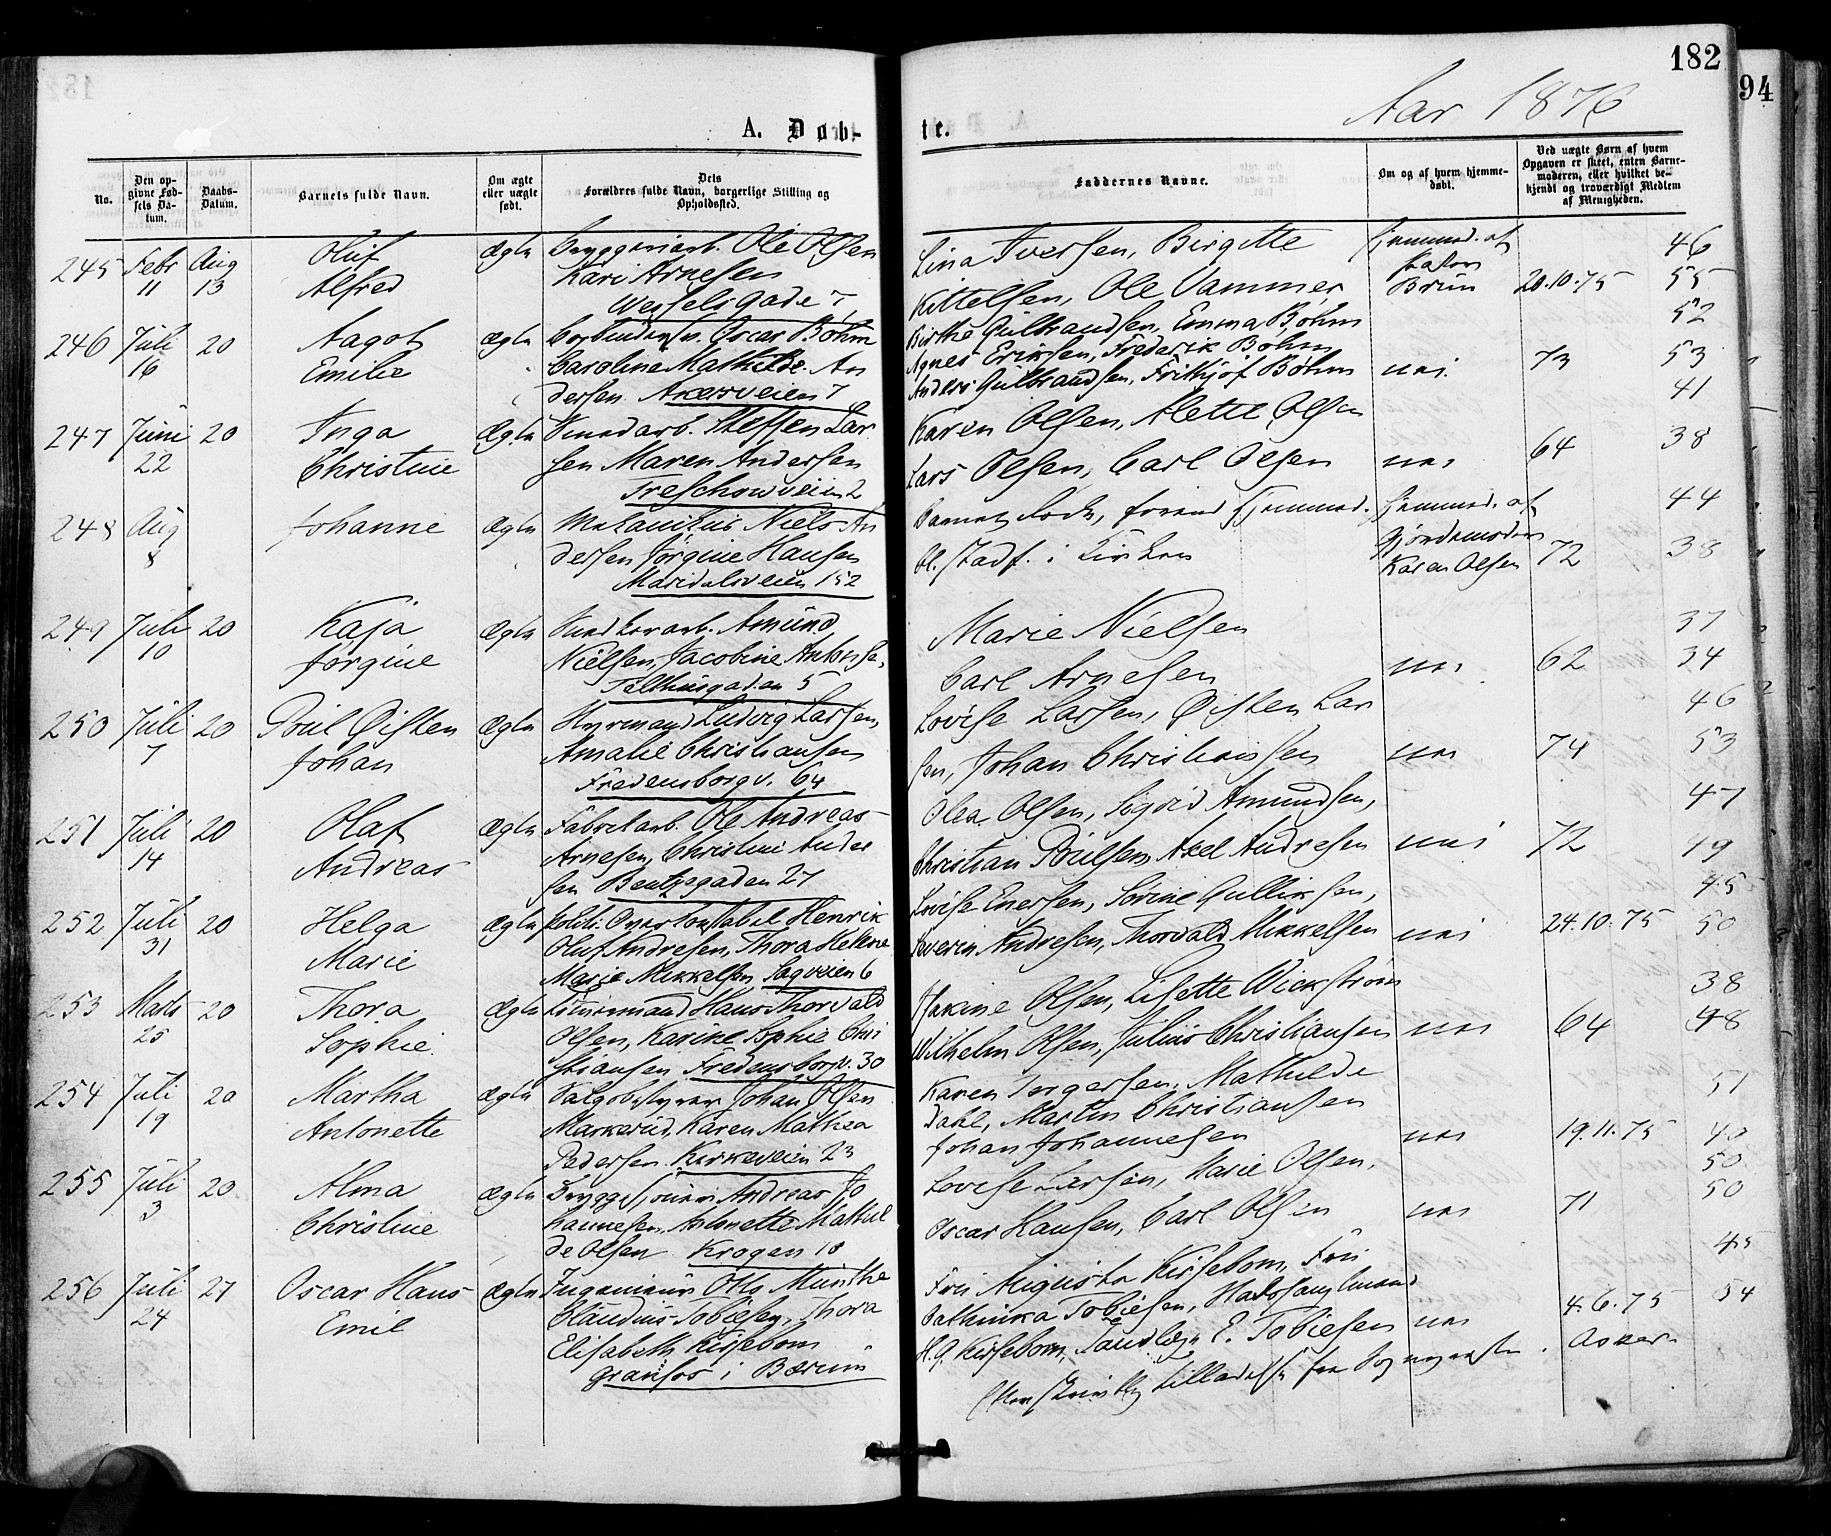 182
94
Aar 1876
A. Døb-
te.
No.
Den op-
givne Fød-
sels Da-
tum.
Daabs-
Datum.
Barnets fulde Navn.
Om ægte
eller uægte
født.
Dets
Forældres fulde Navn, borgerlige Stilling og
Opholdssted.
Faddernes Navne.
Om og af hvem hjemme-
døbt.
Ved uægte Børn af hvem
Opgaven er skeet, enten Barne-
moderen, eller hvilket be-
kjendt og troværdigt Medlem
af Menigheden.
245 Febr 11 Aug 13 Oluf Alfred ægte Bryggeriarb. Ole Olsen
Kari Arnesen
Wessels gade 7
Lina Iversen, Birgitte
Kittelsen, Ole Vammer
hjemmed. af
Brun
20.10.75
46
55
246 Juli 16 20 Aagot Emilie ægte Oscar Bøhm
Carolina Mathilde An
dersen Akersveien 7
Birthe Gulbrandsen, Emma Bøhm
Agnes Eriksen, Frederik Bøhm
Anders Gulbrandsen, Frithjof Bøhm
nei
73
52
53
247 Juni 22 20 Inga Christine ægte Steffen Lar
sen Maren Andersen
Treschowveien 2
Karen Olsen, Alette Olsen
Lars Olsen, Carl Olsen
nei
64
41
38
248 Aug 8 Johanne ægte Mekanikus Niels An
dersen Jørgine Hansen
Maridalsveien 152
Barnet døde, forend hjemmed.
bl. stadf. i Kirken
hjemmed. af
Karen Olsen
72
44
38
249 Juli 10 20 Kaja Jørgine ægte Amund
Nielsen, Jacobine
Telthusgaden 5
Marie Nielsen
Carl Arnesen
nei
62
37
34
250 Juli 7 20 Poul Øisten Johan ægte Styrmand Ludvig Larsen,
Amalie Christiansen
Fredensborgv. 64
Lovise Larsen, Øisten Lar
sen, Johan Christiansen
nei
74
46
53
251 Juli 14 20 Olaf Andreas ægte Fabrikarb. Ole Andreas
Arnesen, Christine Ander
sen Bentsegaden 27
Olea Olsen, Sigvid Amundsen,
Christian Poulsen, Axel Andresen
nei
72
47
49
252 Juli 31 20 Helga Marie ægte Politi Overkonstabel Henrik
Oluf Andresen, Thora Helene
Marie Mikkelsen, Sagveien 6
Lovise Enersen, Sørine Gulliksen,
Severin Andresen, Thorvald Mikkelsen
nei
24.10.75
45
50
253 Marts 25 20 Thora Sophie ægte Hans Thorvald
Olsen, Karine Sophie Chri
stiansen Fredensborgv. 30
Olsen, Lisette Wickstrøm
Wilhelm Olsen, Julius Christiansen
nei
64
38
48
254 Juli 19 20 Martha Antonette ægte Salgsbestyrer Johan Olsen
Markerud, Karen Mathea
Pedersen Kirkeveien 23
Karen Torgersen, Mathilde
Dahl, Martin Christiansen
Johan Johannesen
nei
19.11.75
51
40
255 Juli 3 20 Alma Christine ægte Andreas Jo
hannesen, Antonette Mathil
de Olsen Krogen 10
Lovise Larsen, Marie Olsen,
Oscar Hansen, Carl Olsen
nei
71
50
50
256 Juli 24 27 Oscar Hans Emil ægte Ingenieur Otto Munthe
Claudius Tobiesen, Thora
Elisabeth Kirsebom
Granfos i Bærum
Frk Augusta Kirsebom, Frk
Cathinka Tobiesen,
H.G. Kirsebom, E. Tobiesen
tilladelse fra Sognepresten
nei
4.6.75
Asker
45
54